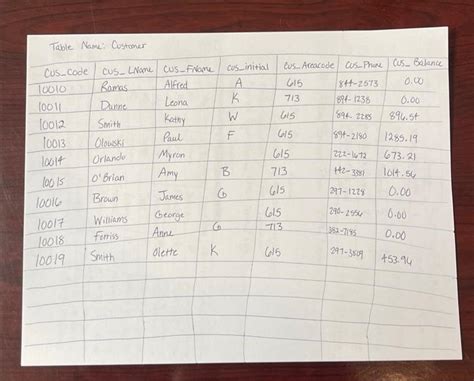 Table Name: Customer
CUS_Code CUS_LName CUS_FName CUS_initial CUS_Areacode CUS_Phone CUS_Balance
10010 Ramas Alfred A 615 844-2573 0.00
10011 Dunne Leona K 713 894-1238 0.00
10012 Smith Kathy W 615 894-2285 896.54
10013 Olowski Paul F 615 894-2180 1285.19
10014 Orlando Myron 615 222-1672 673.21
10015 O'Brian Amy B 713 442-3381 1014.56
10016 Brown James G 615 297-1228 0.00
10017 Williams George 615 290-2556 0.00
10018 Ferriss Anne G 713 382-7185 0.00
10019 Smith Olette K 615 297-3809 453.94